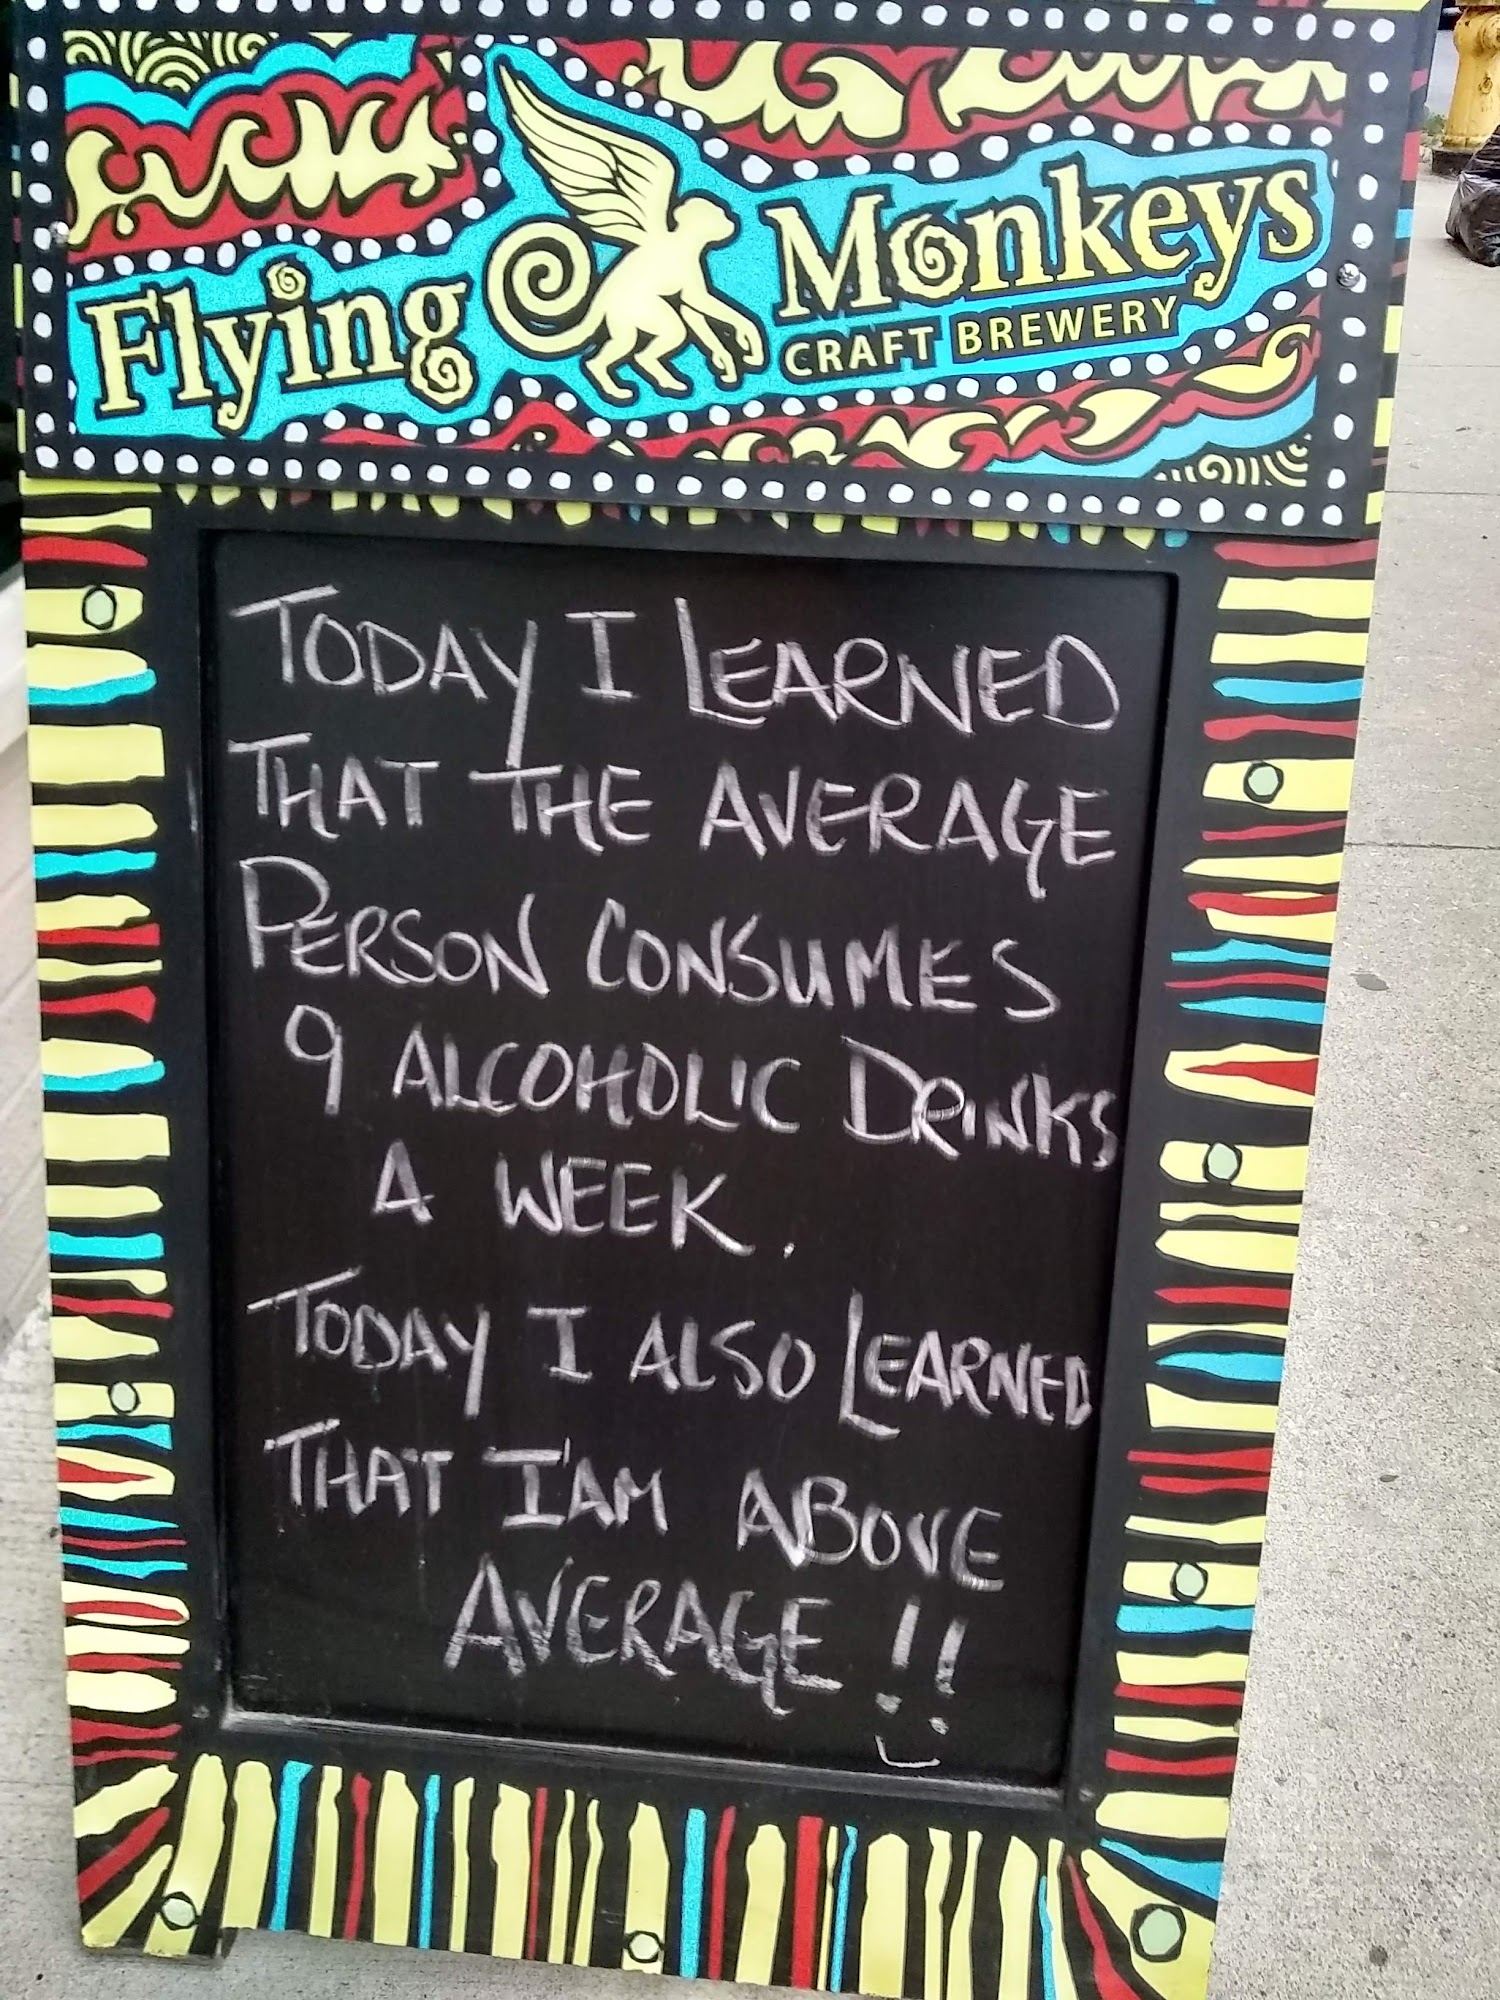 Flying Monkeys
CRAFT BREWERY
TODAY I LEARNED
THAT THE AVERAGE
PERSON CONSUMES
9 ALCOHOLIC DRINKS
A WEEK.
TODAY I ALSO LEARNED
THAT I'AM ABOVE
AVERAGE!!